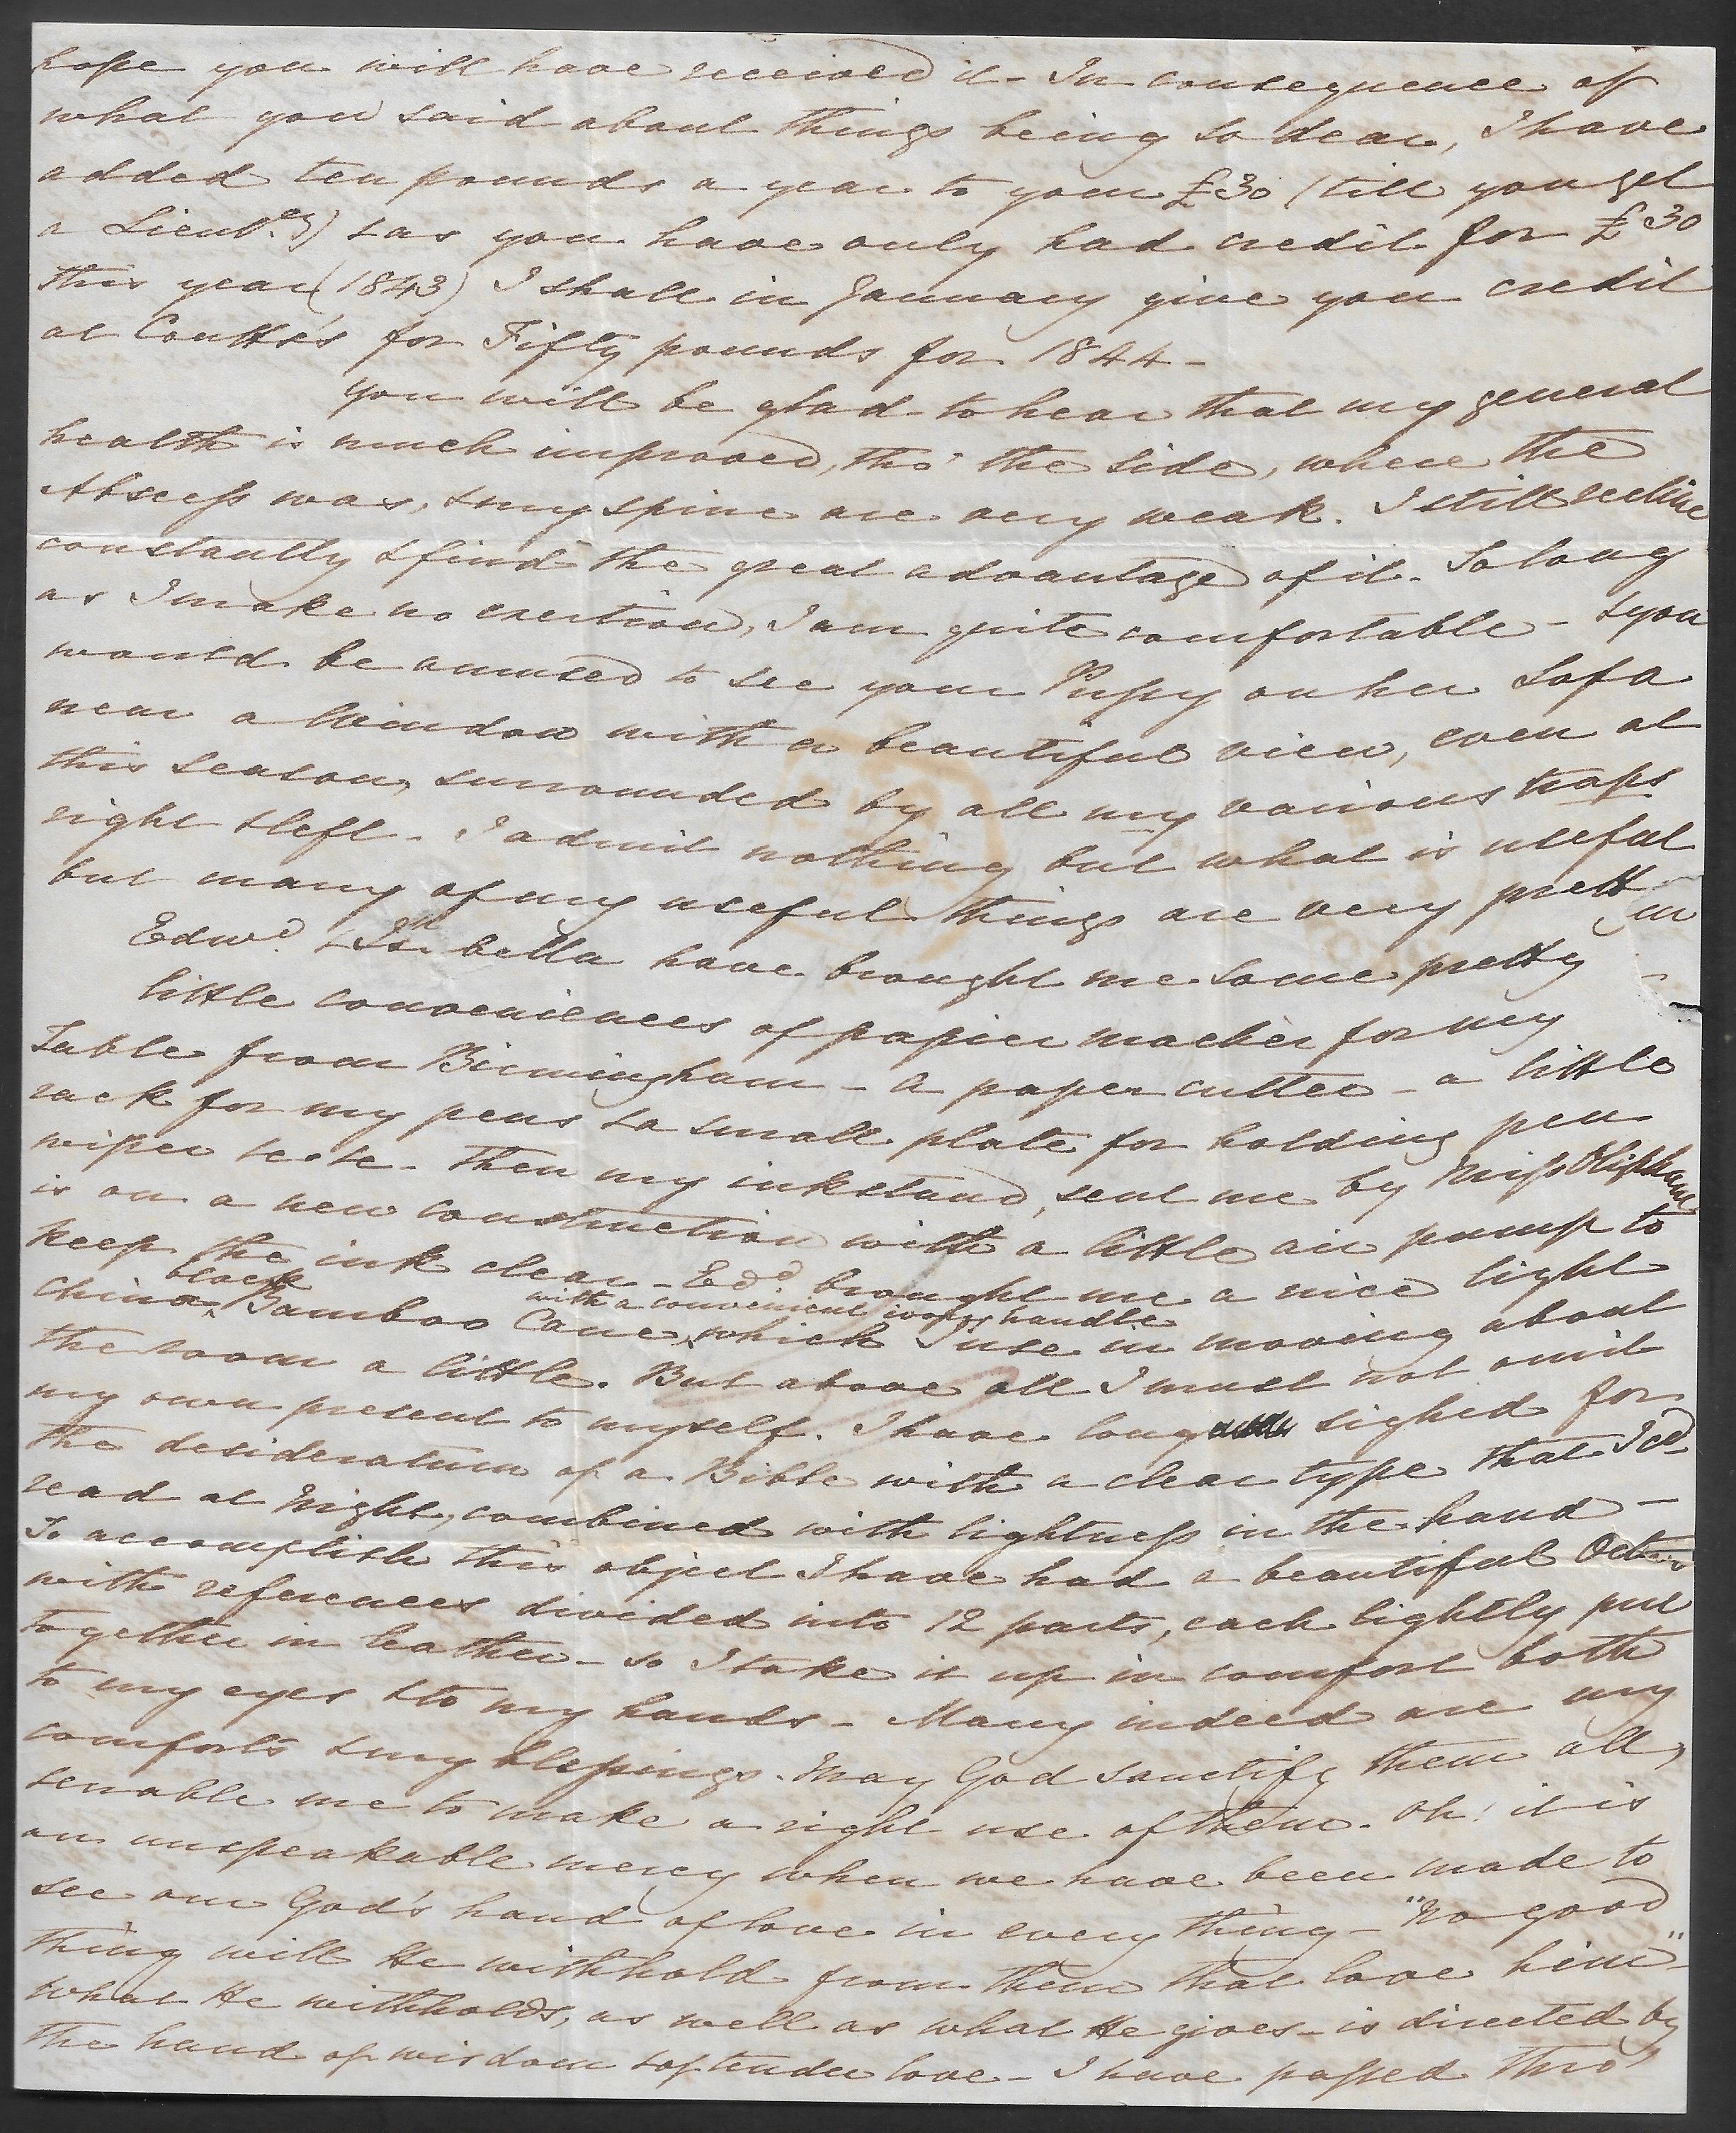 hope you will have received it - In consequence of
what you said about things being so dear, I have
added ten pounds a year to your £30 (till you get
a Lieut.cy) & as you have only had credit for £30
this year (1843) I shall in January give you credit
at Coutts's for Fifty pounds for 1844 -
You will be glad to hear that my general
health is much improved, tho' the side, where the
Abscess was, & my spine are very weak. I still recline
constantly & find the great advantage of it. So long
as I make no exertion, I am quite comfortable - & you
would be amused to see your on her Sofa
near a Window with a beautiful view, even at
this season, surrounded by all my various traps
right & left - I admit nothing but what is useful
but many of my useful things are very prett
Edwd. & Isabella have brought me some pretty
little conveniences of papier machée for my
Table from Birmingham - a paper cutter - a little
rack for my pens & a small plate for holding pen
wiper &c &c - Then my inkstand, sent me by Miss Oliphant
is on a new construction with a little air pump to
keep the ink clear - Edd. brought me a nice light
China black Bamboo Cane, with a convenient ivory handle which I use in moving about
the room a little. But above all I must not omit
my own present to myself. I have long sighed for
the desideratum of a Bible with a clear type that I cd.
read at Night, combined with lightness in the hand -
To accomplish this object I have had a beautiful Octavo
with references divided into 12 parts, each lightly put
together in leather - so I take it up in comfort both
to my eyes & to my hands - Many indeed are my
comforts & my blessings. May God sanctify them all,
& enable me to make a right use of them. Oh! it is
an unspeakable mercy when we have been made to
see our God's hand of love in every thing - "No good
thing will He withhold from them that love him"
what He withholds, as well as what He gives - is directed by
the hand of wisdom & of tender love - I have passed thro'